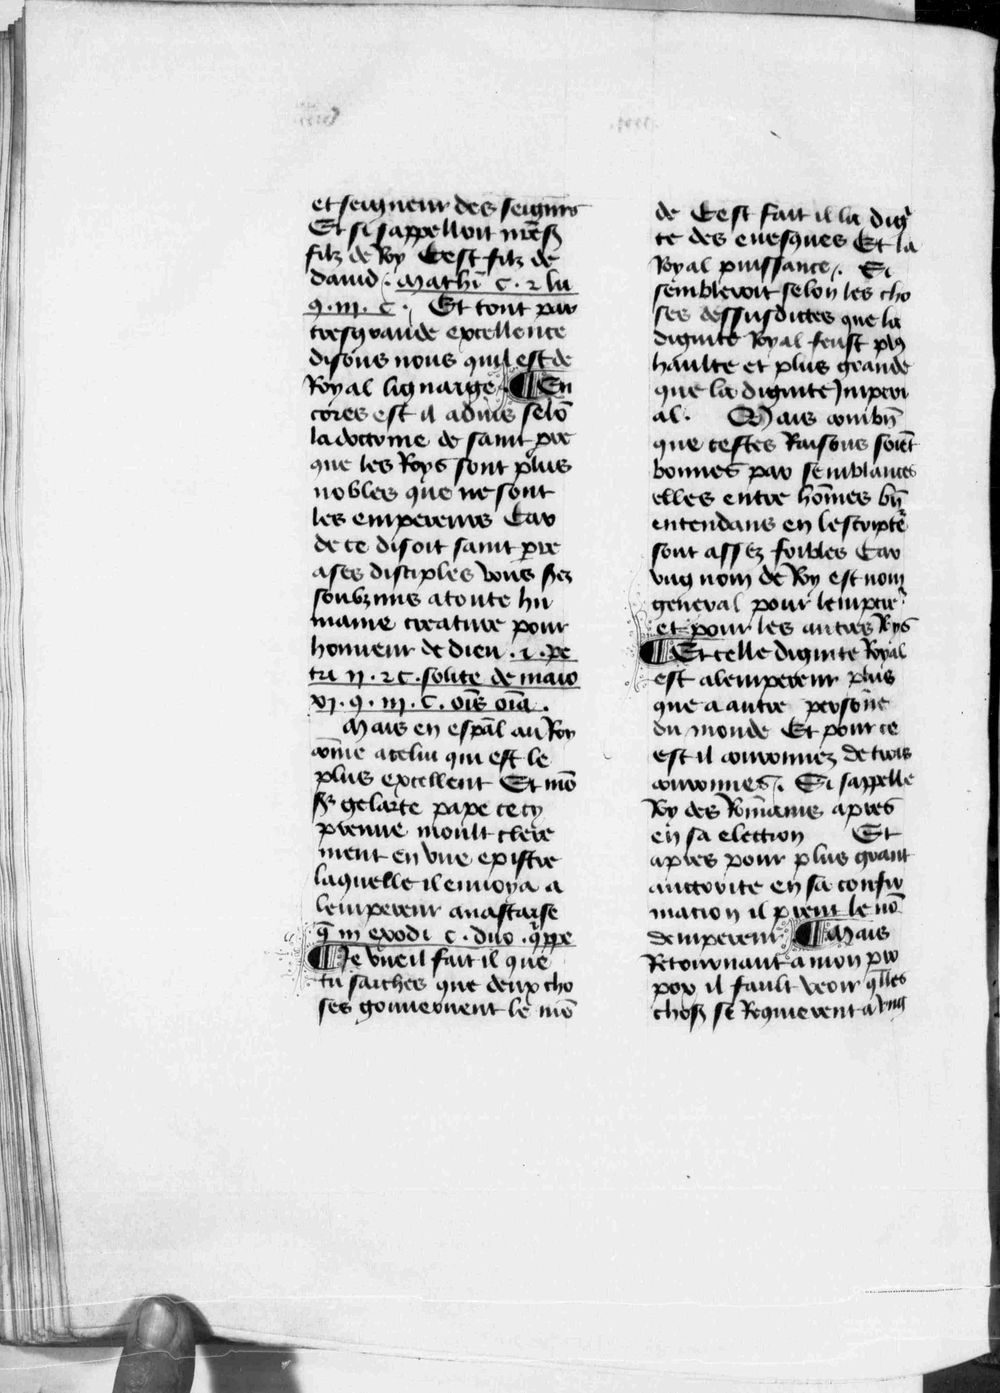 et seigneur des seigñrs
Et si sappelloit mesß
filz de Roy Cest filz de
dauid . Mathi c . 2 lu
q . m . c . Et tout par
tresgrande excellence
disons nous quil est de
Royal lignaige ¶ En
cores est il aduis selõ
la doctrine de saint pre
que les Roys sont plus
nobles que ne sont
les empereurs Car
de ce disoit saint pre
a ses disciples vous ßez
soubzmis a toute hu
maine creature pour
honneur de dieu . 1 . pe
tri ij . 2 c . solite de maio
xj . q . iij . c . oĩs oĩa .
Mais en espãl au Roy
cõme a celui qui est le
plus excellent Et mõ
ßr gelaise pape cecy
preuue moult clere
ment en vne epistre
laquelle il enuoya a
lempereur anastaise
q̃ in exodi c . duo . q̃ppe
¶ Je vueil fait il que
tu saiches que deux cho
ses gouuernent le mõ
de Cest fait il la dig
te des euesques Et la
Royal puissance . Si
sembleroit selon les cho
ses dessusdictes que la
dignite Royal feust pl9
haulte et plus grande
que la dignite Imperi
al . Mais combñ
que cestes Raisons soiẽt
bonnes par semblances
elles entre hõmes bñ
entendans en lescripte
sont assez foibles Car
vng nom de Roy est nom
general pour lempere
et pour les autres Rys
¶ Et celle dignite Royal
est a lempereur plus
que a autre persõne
du monde Et pour ce
est il couronnez de trois
couronnes . Si sappelle
Roy des Rõmains apres
en sa election Et
apres pour plus grant
auctorite en sa confir
macion il prent le nõ
dempereur ¶ Mais
Retournant a mon pro
pox il fault veoir q̃lles
choß se Requierent a vng